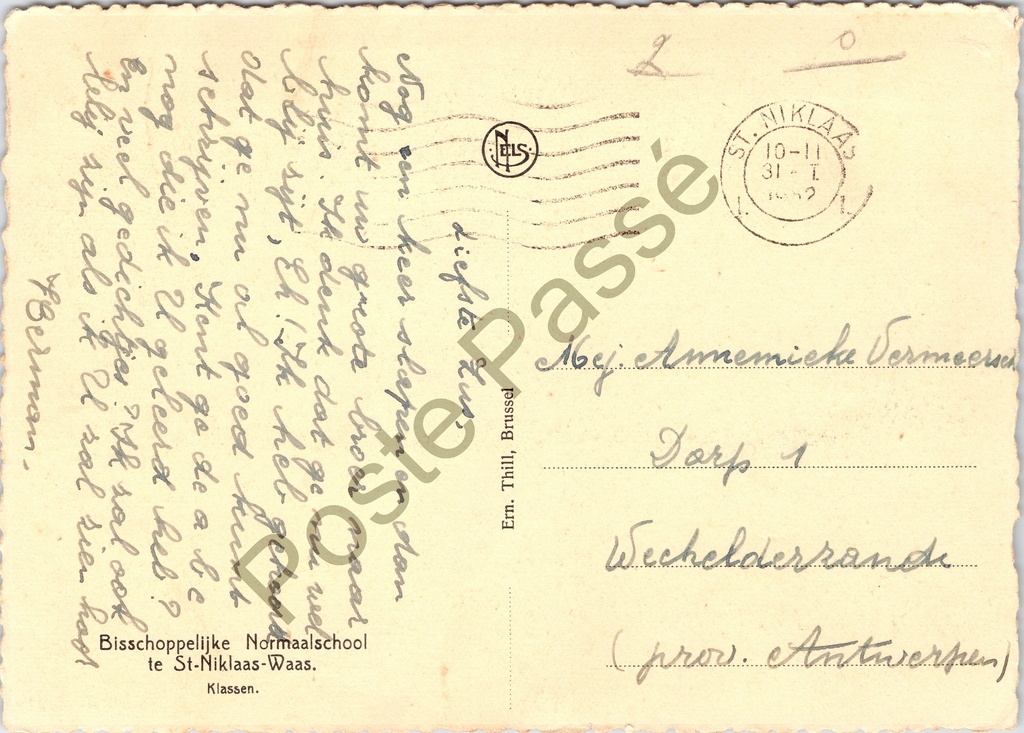 2 0
ST. NIKLAAS
10-11
31 - I
1952
NELS
Liefste Zus,
Nog een keer slapen en dan
komt uw grote broer naar
huis. Ik denk dat ge nu wel
blij zijt, Eh! Ik heb gehoord
dat ge nu al goed kunt
schrijven. Kent ge de a b c
nog die ik U geleerd heb?
En veel gedichtjes? Ik zal ook
blij zijn als ik U zal zien hoor
Herman.
Bisschoppelijke Normaalschool
te St-Niklaas-Waas.
Klassen.
Ern. Thill, Brussel
Mej. Annemieke Vermeersch
Dorp 1
Wechelderzande
(prov. Antwerpen)
Poste Passé